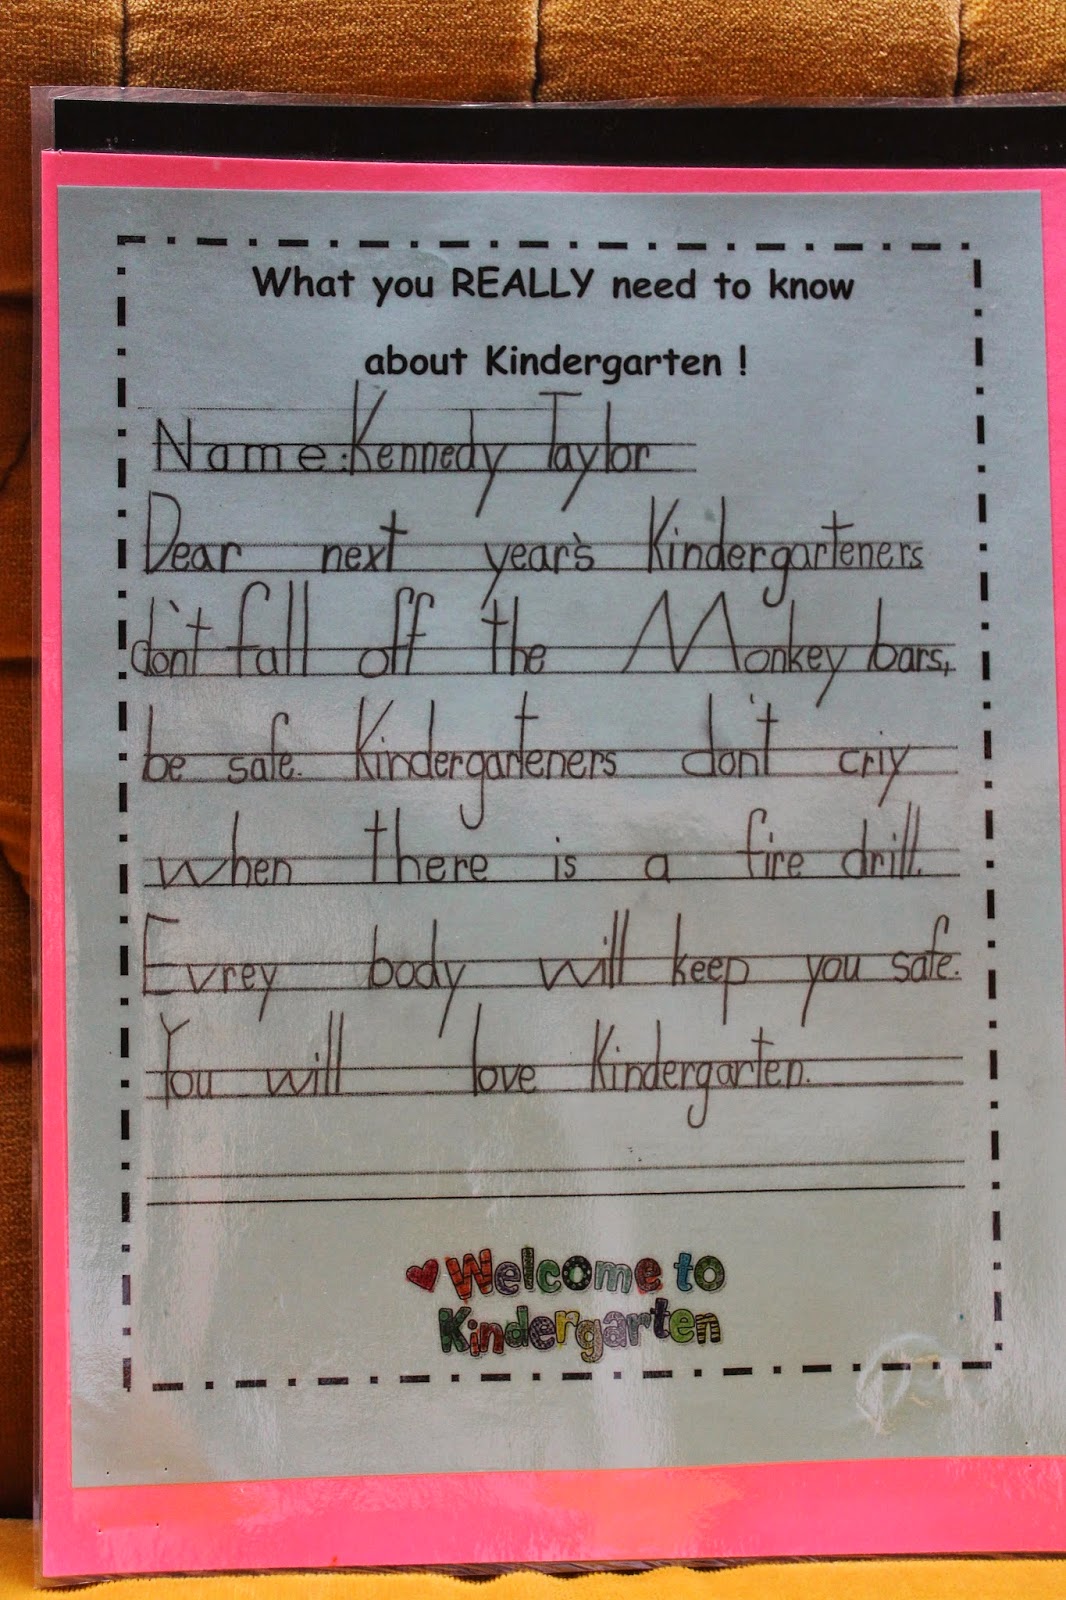 What you REALLY need to know
about Kindergarten !
Name: Kennedy Taylor
Dear next year's Kindergarteners
don't fall off the Monkey bars,
be safe. Kindergarteners don't criy
when there is a fire drill.
Evrey body will keep you safe.
You will love Kindergarten.
Welcome to
Kindergarten